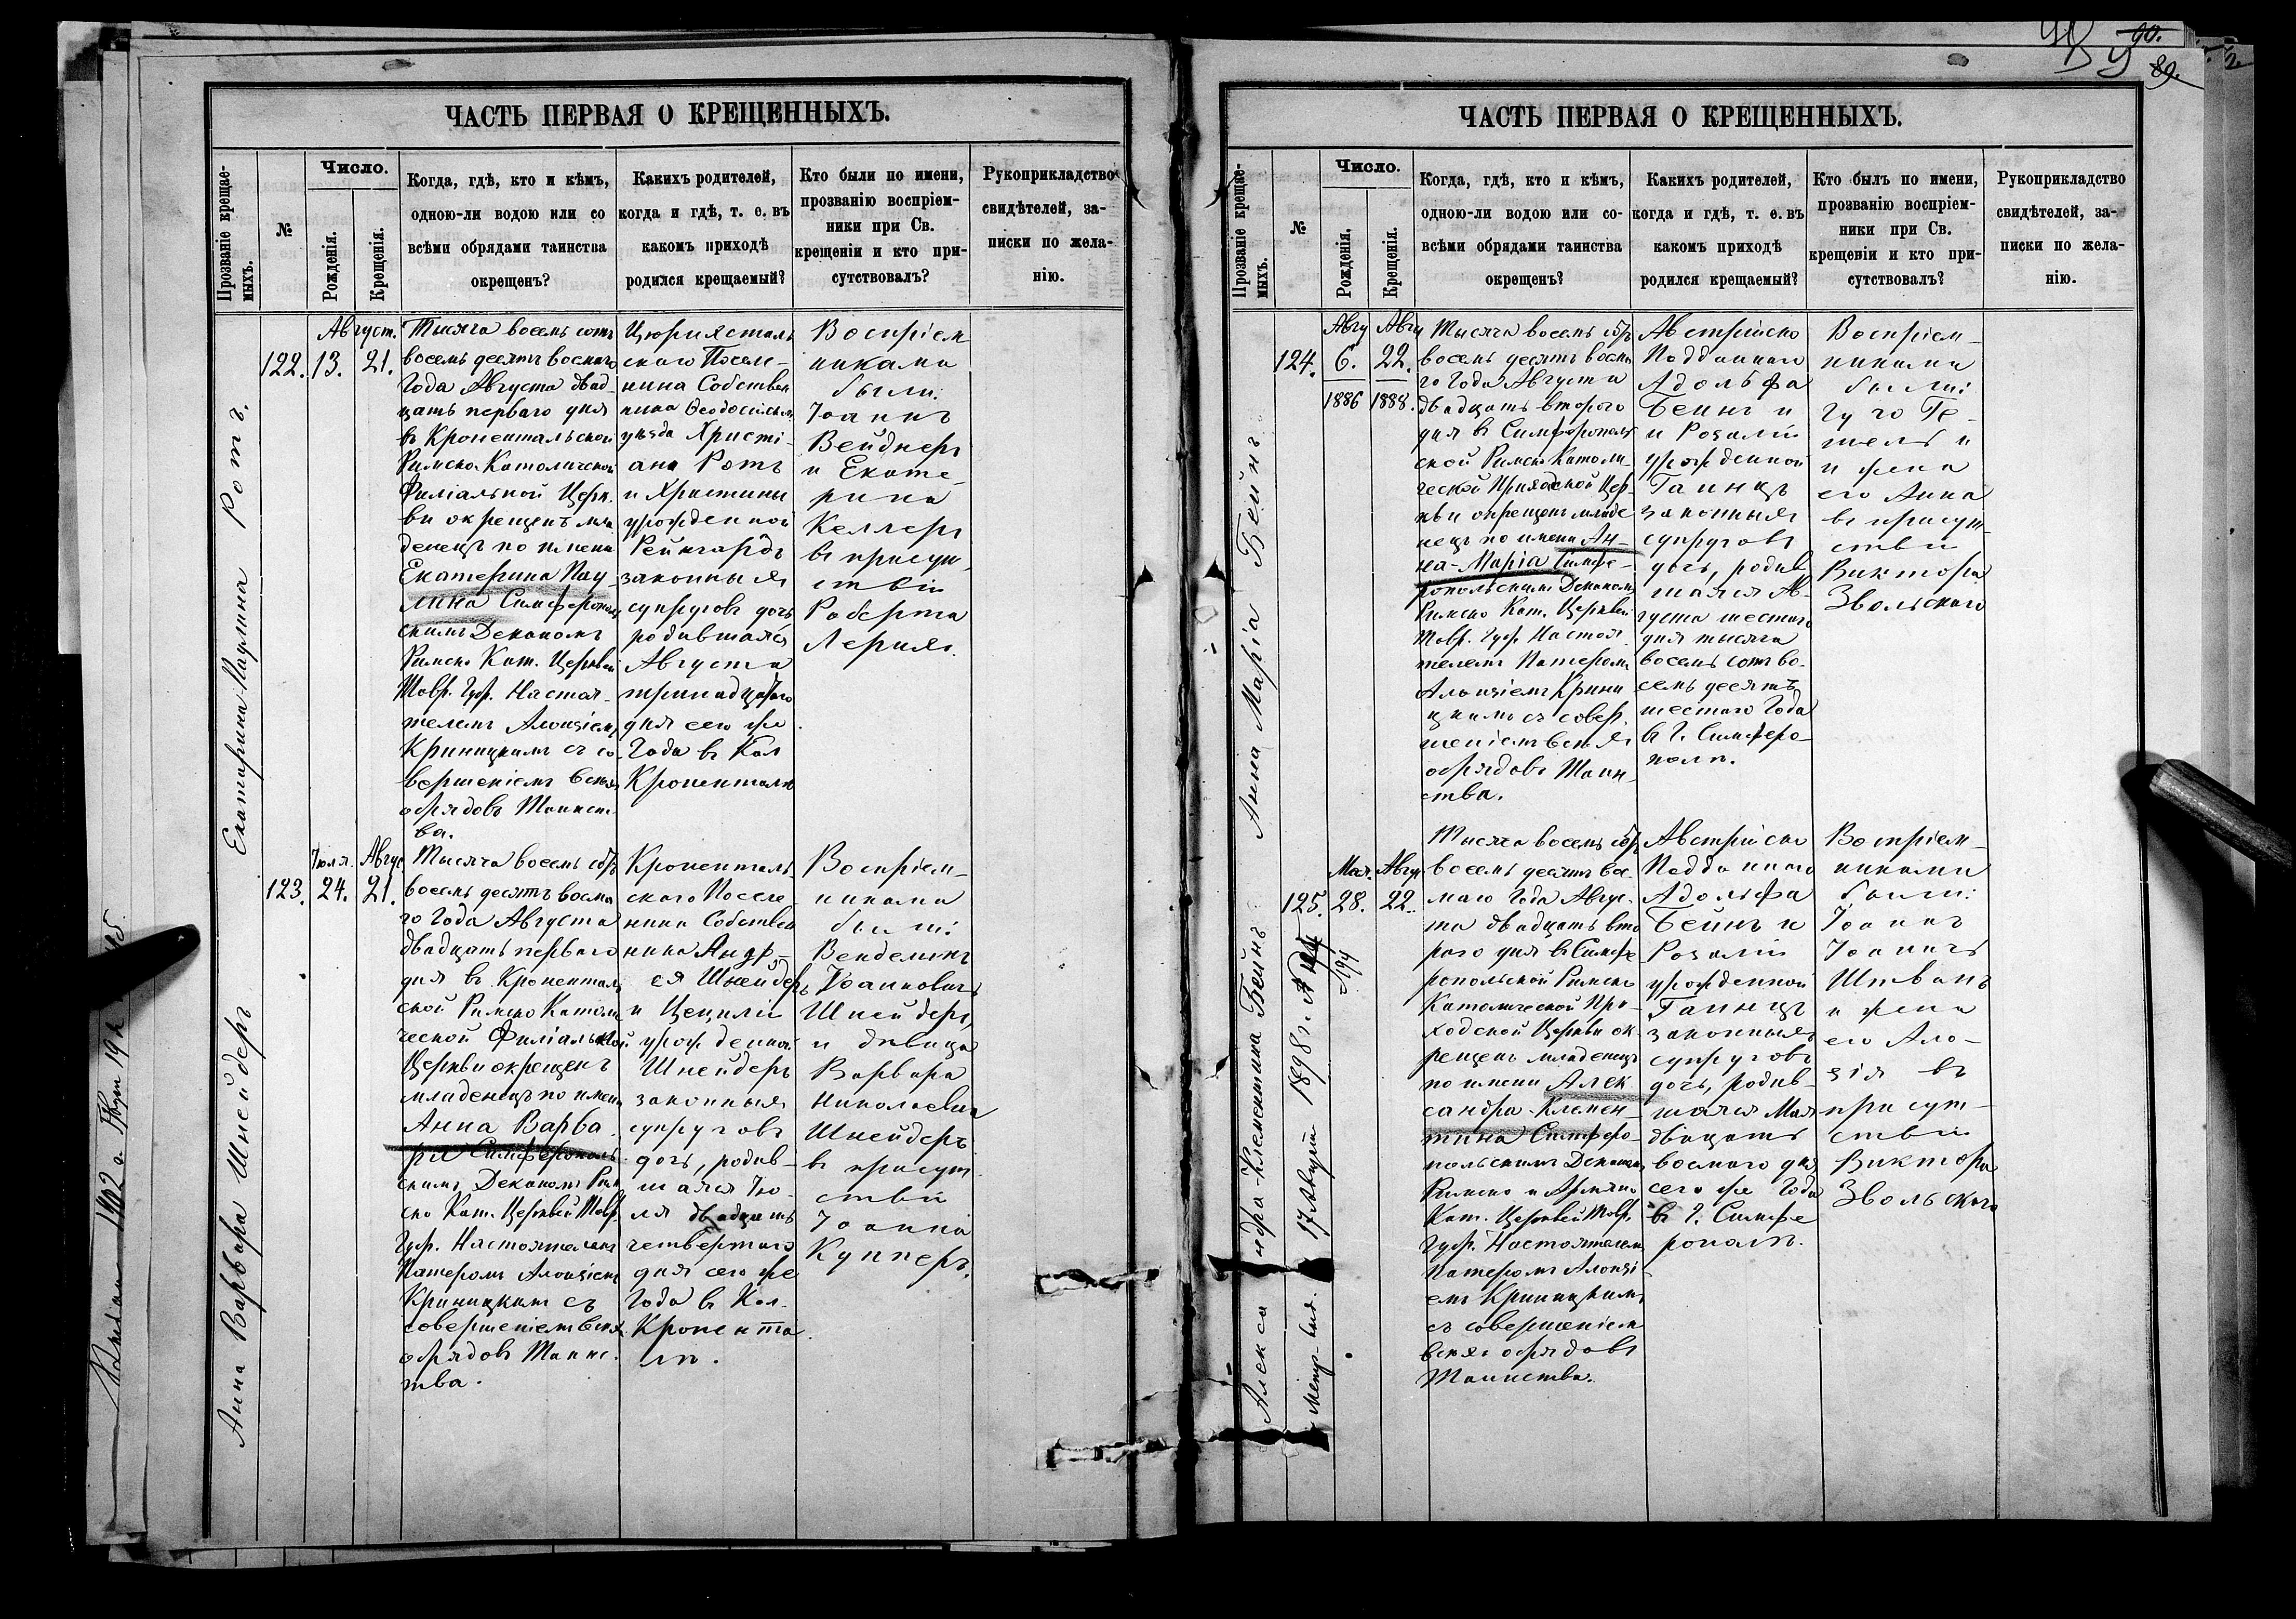 ЧАСТЬ ПЕРВАЯ О КРЕЩЕННЫХЪ.
Прозваніе крещае-
мыхъ.
№
Число.
Рожденія.
Крещенія.
Когда, гдѣ, кто и кѣмъ,
одною-ли водою или со
всѣми обрядами таинства
окрещенъ?
Какихъ родителей,
когда и гдѣ, т. е. въ
какомъ приходѣ
родился крещаемый?
Кто были по имени,
прозванію воспріем-
ники при Св.
крещеніи и кто при-
сутствовалъ?
Рукоприкладство
свидѣтелей, за-
писки по жела-
нію.
Екатарина Паулина Ротъ.
Август.
122. 13. 21.
Тысяча восемь сотъ
восемь десятъ восмаго
Года Августа двад
цать перваго дня
въ Кронентальской
Римско Католической
Филіальной Церк.
ви окрещенъ мла
денецъ по имени
Екатерина Пау
лина Симферополь
скимъ Деканомъ
Римско Кат. Церквей
Тавр. Губ. Настоя-
телемъ Алоизіемъ
Криницкимъ съ со
вершеніемъ всѣхъ
обрядовъ Таинст
ва.
Цюрихсталь
скаго Поселе-
нина Собствен
ника Ѳеодосійск.
уѣзда Христі-
ана Ротъ
и Христины
урожденной
Рейнгардъ
законныхъ
супруговъ дочь
родившаяся
Августа
тринадцатаго
дня сего же
Года въ Кол
Кроненталѣ
Воспріем
никами
были:
Іоаннъ
Вейднеръ
и Екате-
рина
Келлеръ
въ присут-
ствіи
Роберта
Лерихъ.
Анна Варвара Шнейдеръ
Іюля. Авгус
123. 24. 21.
Тысяча восемь сотъ
восемь десятъ восма
го Года Августа
двадцать перваго
дня въ Кроненталь
ской Римско Католи
ческой Филіальной
Церкви окрещенъ
младенецъ по имени
Анна Варва
ра Симферополь
скимъ Деканомъ Рим
ско Кат. Церквей Тавр.
Губ. Настоятелемъ
Патеромъ Алоизіемъ
Криницкимъ съ
совершеніемъ всѣхъ
обрядовъ Таинс.
тва.
Кроненталь
скаго Поселе
нина Собствен
ника Андр-
ея Шнейдеръ
и Цециліи
урожденной
Шнейдеръ
законныхъ
супруговъ
дочь, родив-
шаяся Ію-
ля двадцать
четвертаго
дня сего же
Года въ Кол.
Кронента
лѣ.
Воспріем-
никами
были:
Венделинъ
Іоанновичъ
Шнейдеръ,
и дѣвица
Варвара
Николаевна
Шнейдеръ
въ присут
ствіи
Іоанна
Купперъ.
90.
89.
ЧАСТЬ ПЕРВАЯ О КРЕЩЕННЫХЪ.
Прозваніе крещае-
мыхъ.
№
Число.
Рожденія.
Крещенія.
Когда, гдѣ, кто и кѣмъ,
одною-ли водою или со-
всѣми обрядами таинства
окрещенъ?
Какихъ родителей,
когда и гдѣ, т. е. въ
какомъ приходѣ
родился крещаемый?
Кто былъ по имени,
прозванію воспріем-
ники при Св.
крещеніи и кто при-
сутствовалъ?
Рукоприкладство
свидѣтелей, за-
писки по жела-
нію.
Анна Марія Бейнъ
Авгу Авгу
124. 6. 22.
1886 1888.
Тысяча восемь сотъ
восемь десятъ восма
го Года Августа
двадцать втораго
дня въ Симферополь
ской Римско Католи-
ческой Приходской Цер-
кви окрещенъ младе
нецъ по имени Ан-
на-Марія Симфе-
ропольскимъ Деканомъ
Римско Кат. Церквей
Тавр. Губ. Настоя
телемъ Патеромъ
Алоизіемъ Крини
цкимъ съ совер.
шеніемъ всѣхъ
обрядовъ Таин-
ства.
Австрійско
Подданнаго
Адольфа
Бейнъ и
и Розаліи
урожденной
Гаинцъ
законныхъ
супруговъ
дочь, родив
шаяся Ав-
густа шестаго
дня тысяча
восемь сотъ во-
семь десятъ
шестаго Года
въ г. Симферо-
полѣ.
Воспріем-
никами
были:
Гуго Ге-
и жена
его Анна
въ присут-
ствіи
Виктора
Звольскаго
Алекса ндра-Клементина Бейнъ
17 1898 г.
Мая. Авгу
125. 28. 22.
Тысяча восемь сотъ
восемь десятъ вос-
маго Года Авгус-
та двадцать вто
раго дня въ Симфе
ропольской Римско
Католической При-
ходской Церкви ок-
рещенъ младенецъ
по имени Алек
сандра-Клемен-
тина Симферо-
польскимъ Деканомъ
Римско и Армяно
Кат. Церквей Тавр.
Губ. Настоятелемъ
Патеромъ Алоизі-
емъ Криницкимъ
съ совершеніемъ
всѣхъ обрядовъ
Таинства.
Австрійско
Подданнаго
Адольфа
Бейнъ и
Розаліи
урожденной
Гаинцъ
законныхъ
супруговъ
дочь, родив-
шаяся Мая
двацать
восмаго дня
сего же Года
въ г. Симфе
рополѣ.
Воспріем-
никами
были:
Іоаннъ
Іоаннъ
Штванъ
и жена
его Ало-
зія въ
присут-
ствіи
Виктора
Звольскаго